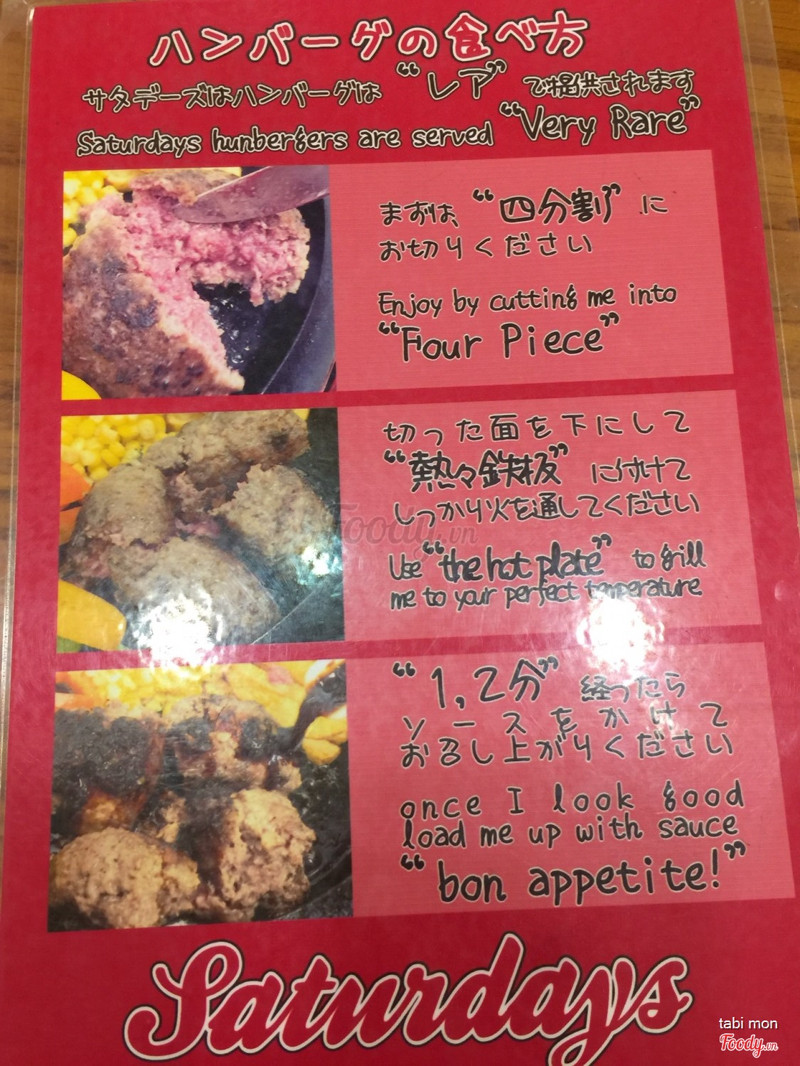 ハンバーグの食べ方
サタデーズはハンバーグは “レア” で提供されます
Saturdays hunbergers are served “Very Rare”
まずは、“四分割” に
お切りください
Enjoy by cutting me into
“Four Piece”
切った面を下にして
“熱々鉄板” に付けて
しっかり火を通してください
Use “the hot plate” to grill
me to your perfect temperature
“1,2分” 経ったら
ソースをかけて
お召し上がりください
once I look good
load me up with sauce
“bon appetite!”
Saturdays
Foody.vn
tabi mon
Foody.vn